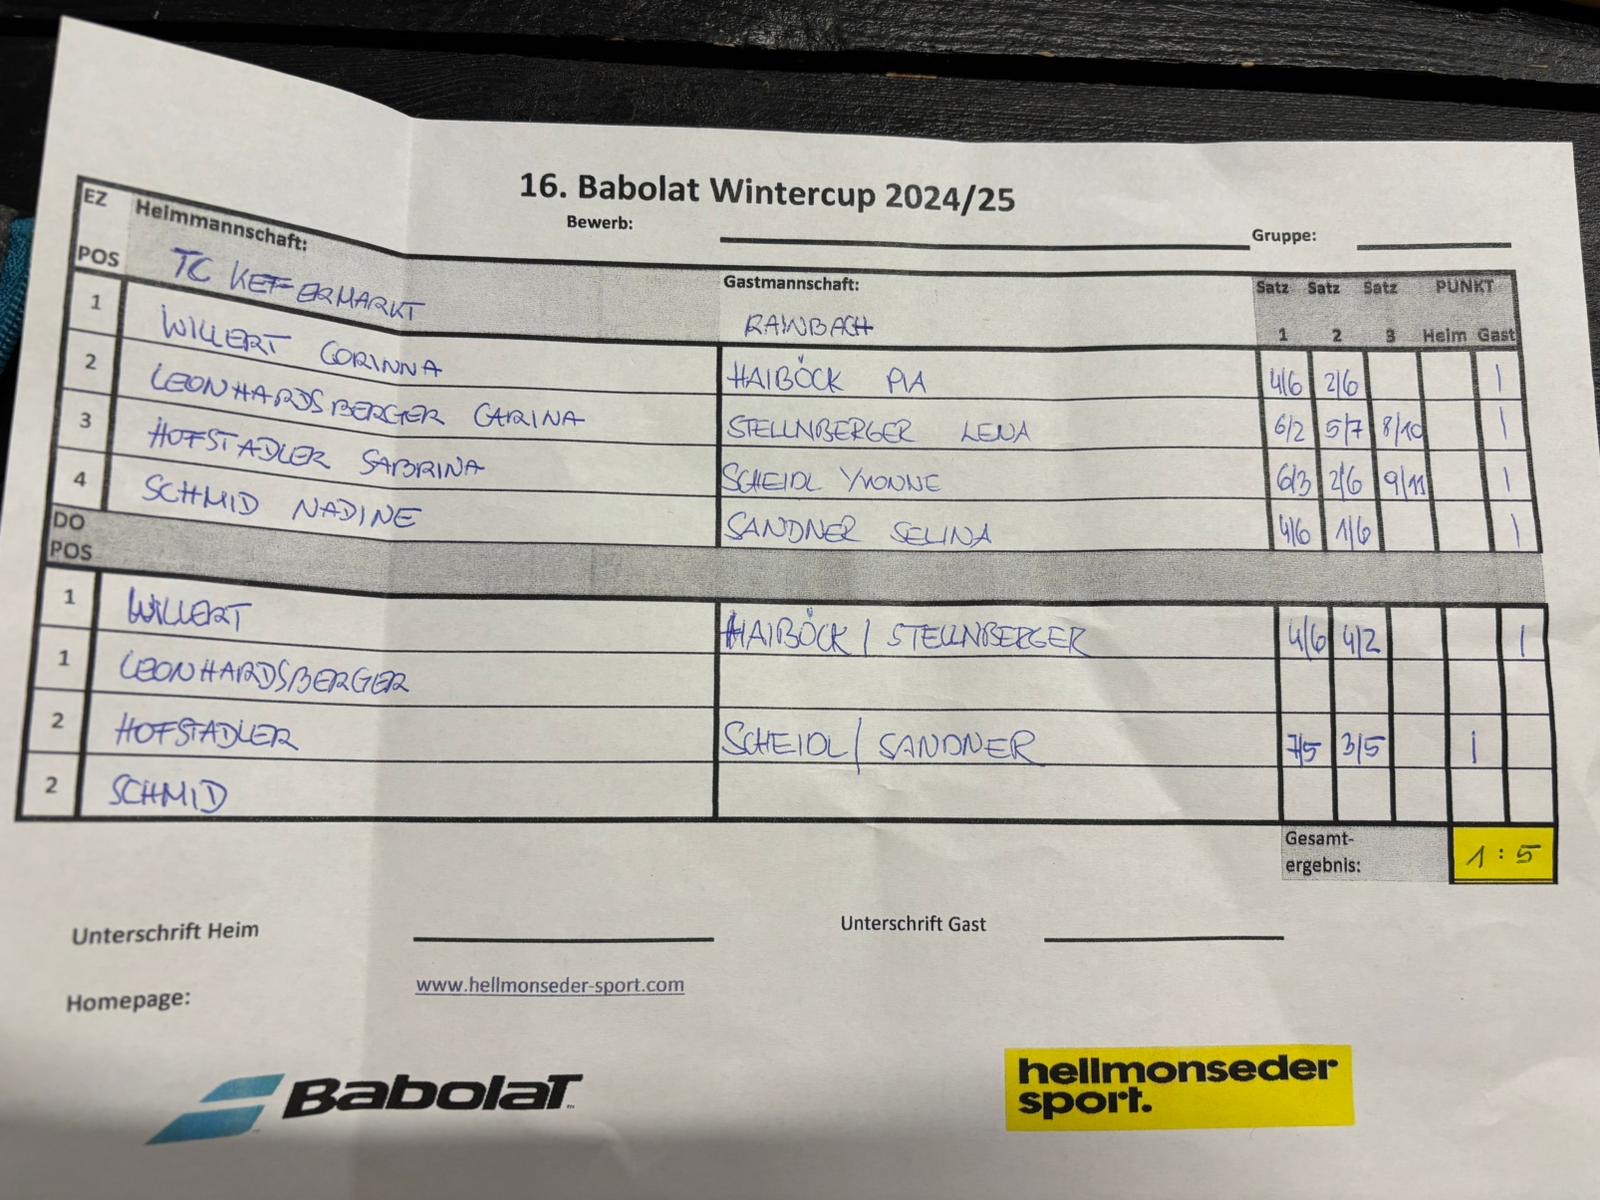 16. Babolat Wintercup 2024/25
Bewerb: Gruppe:
EZ POS Heimmannschaft: TC KEFERMARKT Gastmannschaft: RAINBACH Satz 1 Satz 2 Satz 3 PUNKT Heim Gast
1 WILLERT CORINNA HAIBÖCK PIA 4/6 2/6 1
2 LEONHARDSBERGER CARINA STELLNBERGER LENA 6/2 5/7 8/10 1
3 HOFSTADLER SABRINA SCHEIDL YVONNE 6/3 2/6 9/11 1
4 SCHMID NADINE SANDNER SELINA 4/6 1/6 1
DO POS
1 WILLERT HAIBÖCK / STELLNBERGER 4/6 4/2 1
1 LEONHARDSBERGER
2 HOFSTADLER SCHEIDL / SANDNER 7/5 3/5 1
2 SCHMID
Gesamt-
ergebnis: 1 : 5
Unterschrift Heim Unterschrift Gast
Homepage: www.hellmonseder-sport.com
Babolat
hellmonseder
sport.